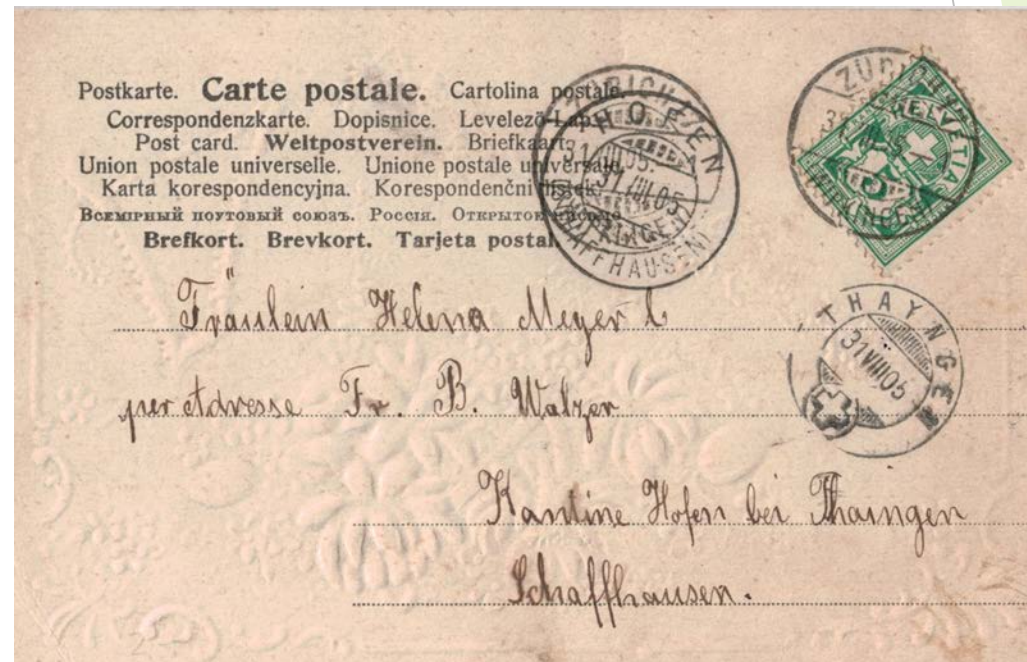 Postkarte. Carte postale. Cartolina postale.
Correspondenzkarte. Dopisnice. Levelező-Lap.
Post card. Weltpostverein. Briefkaart.
Union postale universelle. Unione postale universale.
Karta korespondencyjna. Korespondenční lístek.
Всемірный почтовый союзъ. Россія. Открытое письмо.
Brefkort. Brevkort. Tarjeta postal.
HOFEN
31.VIII.05
(SCHAFFHAUSEN)
HELVETIA
5
THAYNGEN
31 VIII 05
Fräulein Helena Meyer
per Adresse Fr. B. Walzer
Kantine Hofen bei Thaingen
Schaffhausen.